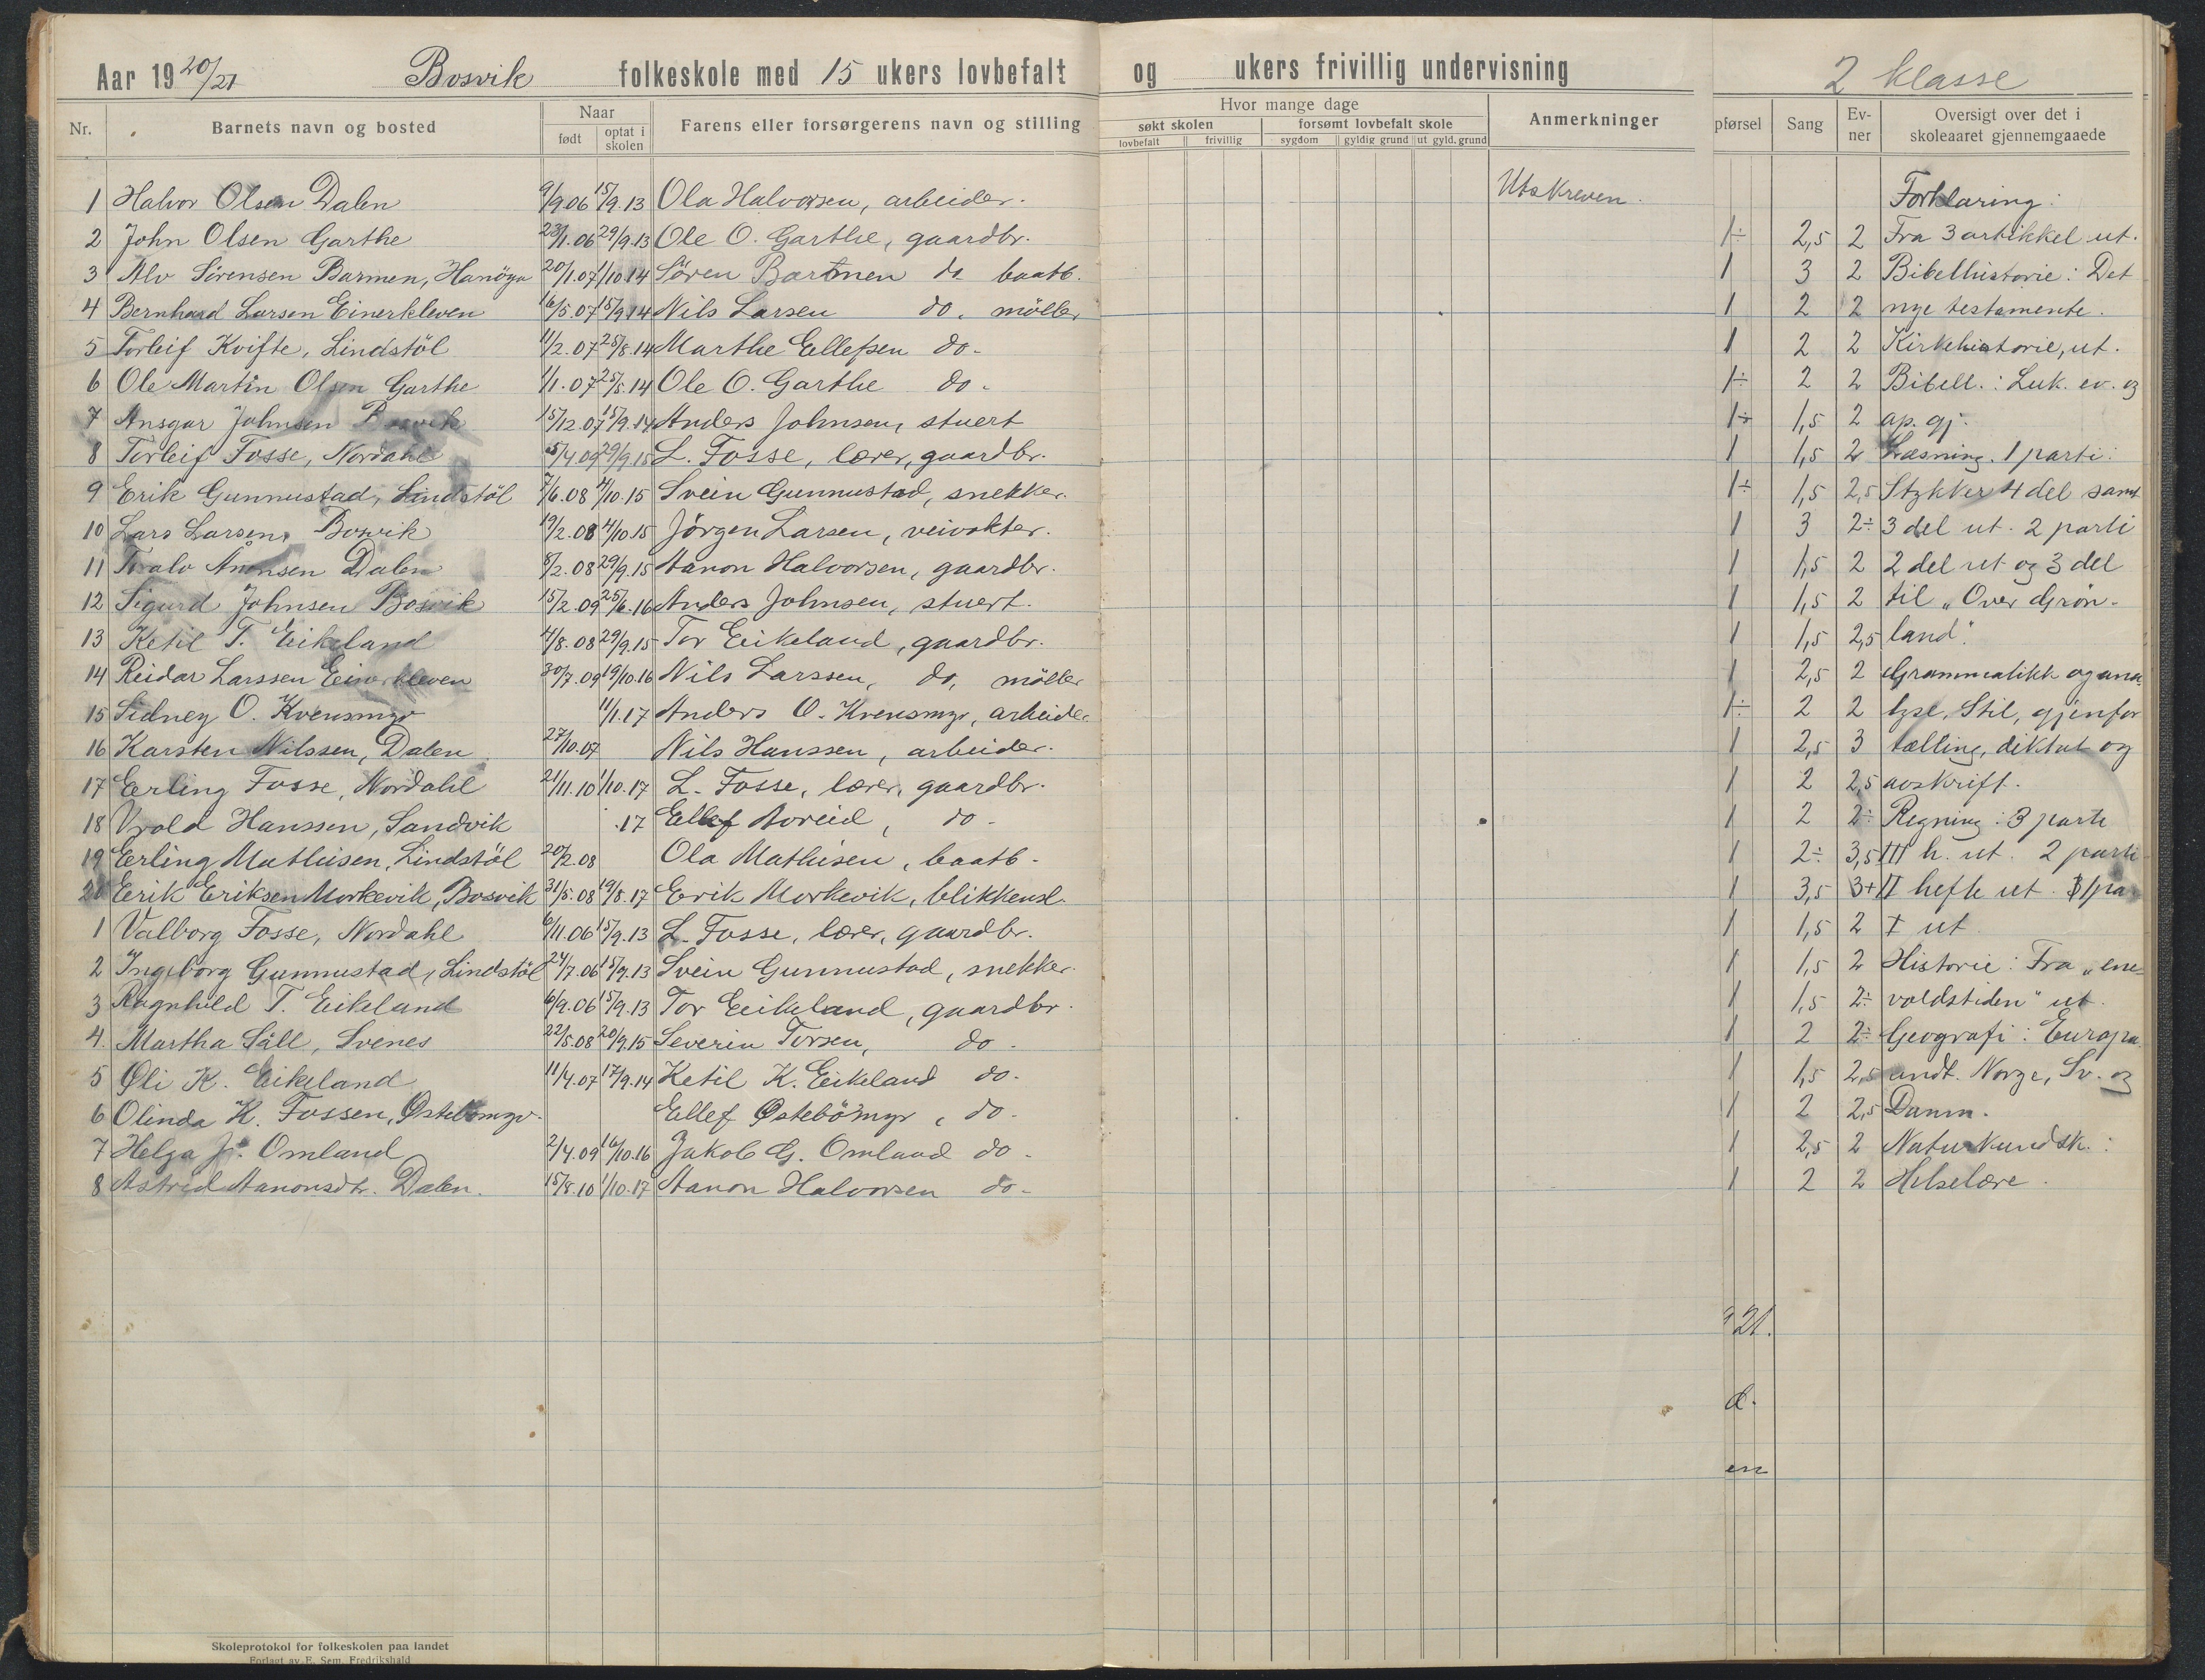 Aar 1920/21 Bosvik folkeskole med 15 ukers lovbefalt og ukers frivillig undervisning 2 klasse
Nr. Barnets navn og bosted Naar Farens eller forsørgerens navn og stilling Hvor mange dage Anmerkninger pførsel Sang Ev- Oversigt over det i
født optat i søkt skolen forsømt lovbefalt skole ner skoleaaret gjennemgaaede
skolen lovbefalt frivillig sygdom gyldig grund ut gyld. grund
1 Halvor Olsen Dalen 9/9.06 15/9.13 Ola Halvorsen, arbeider. Utskreven. Forklaring:
2 John Olsen Garthe 23/1.06 29/9.13 Ole O. Garthe, gaardbr. 1÷ 2,5 2 Fra 3 artikkel ut.
3 Alv Sörensen Barmen, Hanöya 20/1.07 1/10.14 Sören Barmen do baatb. 1 3 2 Bibelhistorie: Det
4 Bernhard Larsen Einerkleven 16/5.07 15/9.14 Nils Larsen do. möller 1 2 2 nye testamente.
5 Torleif Kvifte, Lindstöl 11/2.07 25/8.14 Marthe Ellefsen do. 1 2 2 Kirkehistorie, ut.
6 Ole Martin Olsen Garthe 1/1.07 25/5.14 Ole O. Garthe do. 1÷ 2 2 Bibell.: Luk. ev. og
7 Ansgar Johnsen Bosvik 15/12.07 15/9.14 Anders Johnsen, stuert 1÷ 1,5 2 ap. gj.
8 Torleif Fosse, Nordahl 5/4.09 29/9.15 L. Fosse, lærer, gaardbr. 1 1,5 2 Læsning. 1 parti:
9 Erik Gunnustad, Lindstöl 7/6.08 4/10.15 Svein Gunnustad, snekker. 1÷ 1,5 2,5 Stykker 4 del samt
10 Lars Larsen, Bosvik 19/2.08 4/10.15 Jörgen Larsen, veivokter. 1 3 2÷ 3 del ut. 2 parti
11 Tralv Aanonsen Dalen 8/2.08 29/9.15 Aanon Halvorsen, gaardbr. 1 1,5 2 2 del ut og 3 del
12 Sigurd Johnsen Bosvik 15/2.09 25/6.16 Anders Johnsen, stuert. 1 1,5 2 til „Over Grøn-
13 Ketil T. Eikeland 4/8.08 29/9.15 Tor Eikeland, gaardbr. 1 1,5 2,5 land".
14 Reidar Larssen Einerkleven 30/7.09 19/10.16 Nils Larssen, do, möller 1 2,5 2 Grammatikk og ana
15 Sidney O. Kvensmyr 11/1.17 Anders O. Kvensmyr, arbeider 1÷ 2 2 lyse, Stil, gjenfor
16 Karsten Nilssen, Dalen 27/10.07 Nils Hanssen, arbeider. 1 2,5 3 tælling, diktat og
17 Erling Fosse, Nordahl 21/11.10 1/10.17 L. Fosse, lærer, gaardbr. 1 2 2,5 avskrift.
18 Vrold Hanssen, Sandvik .17 Ellef Aoreid, do. 1 2 2÷ Regning: 3 parti
19 Erling Mathisen, Lindstöl 20/2.08 Ola Mathisen, baatb. 1 2÷ 3,5 III h. ut. 2 parti
20 Erik Eriksen Morkevik, Bosvik 31/5.08 19/8.17 Erik Morkevik, blikkensl. 1 3,5 3+ II hefte ut. 1 pa
1 Valborg Fosse, Nordahl 6/11.06 15/9.13 L. Fosse, lærer, gaardbr. 1 1,5 2 I ut
2 Ingeborg Gunnustad, Lindstöl 24/7.06 15/9.13 Svein Gunnustad, snekker. 1 1,5 2 Historie: Fra „ene-
3 Ragnhild T. Eikeland 6/9.06 15/9.13 Tor Eikeland, gaardbr. 1 1,5 2÷ voldstiden" ut.
4. Martha Säll, Svenes 22/5.08 20/9.15 Severin Torsen, do. 1 2 2÷ Geografi: Europa
5 Oli K. Eikeland 11/4.07 17/9.14 Ketil K. Eikeland do. 1 1,5 2,5 undt. Norge, Sv. og
6 Olinda K. Fossen, Østebömyr. Ellef Østebömyr, do. 1 2 2,5 Danm.
7 Helga J. Omland 2/4.09 16/10.16 Jakob G. Omland do. 1 2,5 2 Naturkundsk.:
8 Astrid Aanonsdtr. Dalen. 15/8.10 1/10.17 Aanon Halvorsen do. 1 2 2 Helselære.
21.
d.
en
Skoleprotokol for folkeskolen paa landet
Forlagt av E. Sem, Fredrikshald